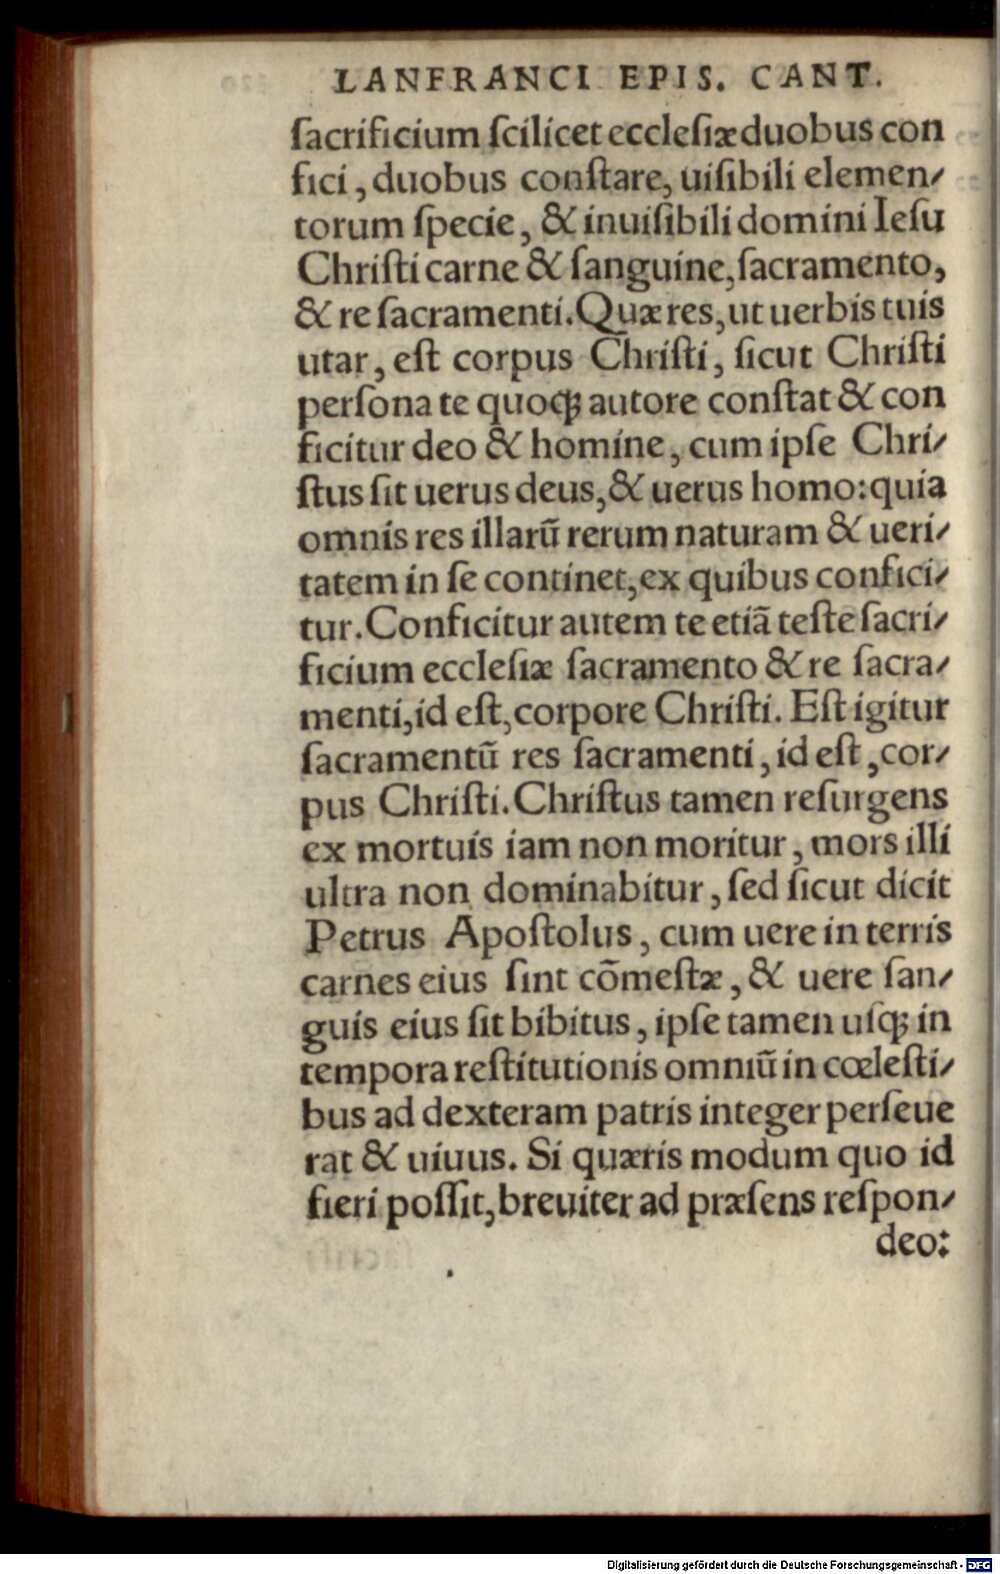 LANFRANCI EPIS. CANT.
ſacrificium ſcilicet eccleſiæ duobus con
fici, duobus conſtare, uiſibili elemen-
torum ſpecie, & inuiſibili domini Ieſu
Chriſti carne & ſanguine, ſacramento,
& re ſacramenti. Quæ res, ut uerbis tuis
utar, eſt corpus Chriſti, ſicut Chriſti
perſona te quoqꝫ autore conſtat & con
ficitur deo & homine, cum ipſe Chri-
ſtus ſit uerus deus, & uerus homo: quia
omnis res illarũ rerum naturam & ueri-
tatem in ſe continet, ex quibus confici-
tur. Conficitur autem te etiã teſte ſacri-
ficium eccleſiæ ſacramento & re ſacra-
menti, id eſt, corpore Chriſti. Eſt igitur
ſacramentũ res ſacramenti, id eſt, cor-
pus Chriſti. Chriſtus tamen reſurgens
ex mortuis iam non moritur, mors illi
ultra non dominabitur, ſed ſicut dicit
Petrus Apoſtolus, cum uere in terris
carnes eius ſint cõmeſtæ, & uere ſan-
guis eius ſit bibitus, ipſe tamen uſqꝫ in
tempora reſtitutionis omniũ in cœleſti-
bus ad dexteram patris integer perſeue
rat & uiuus. Si quæris modum quo id
fieri poſſit, breuiter ad præſens reſpon-
deo:
Digitalisierung gefördert durch die Deutsche Forschungsgemeinschaft - DFG